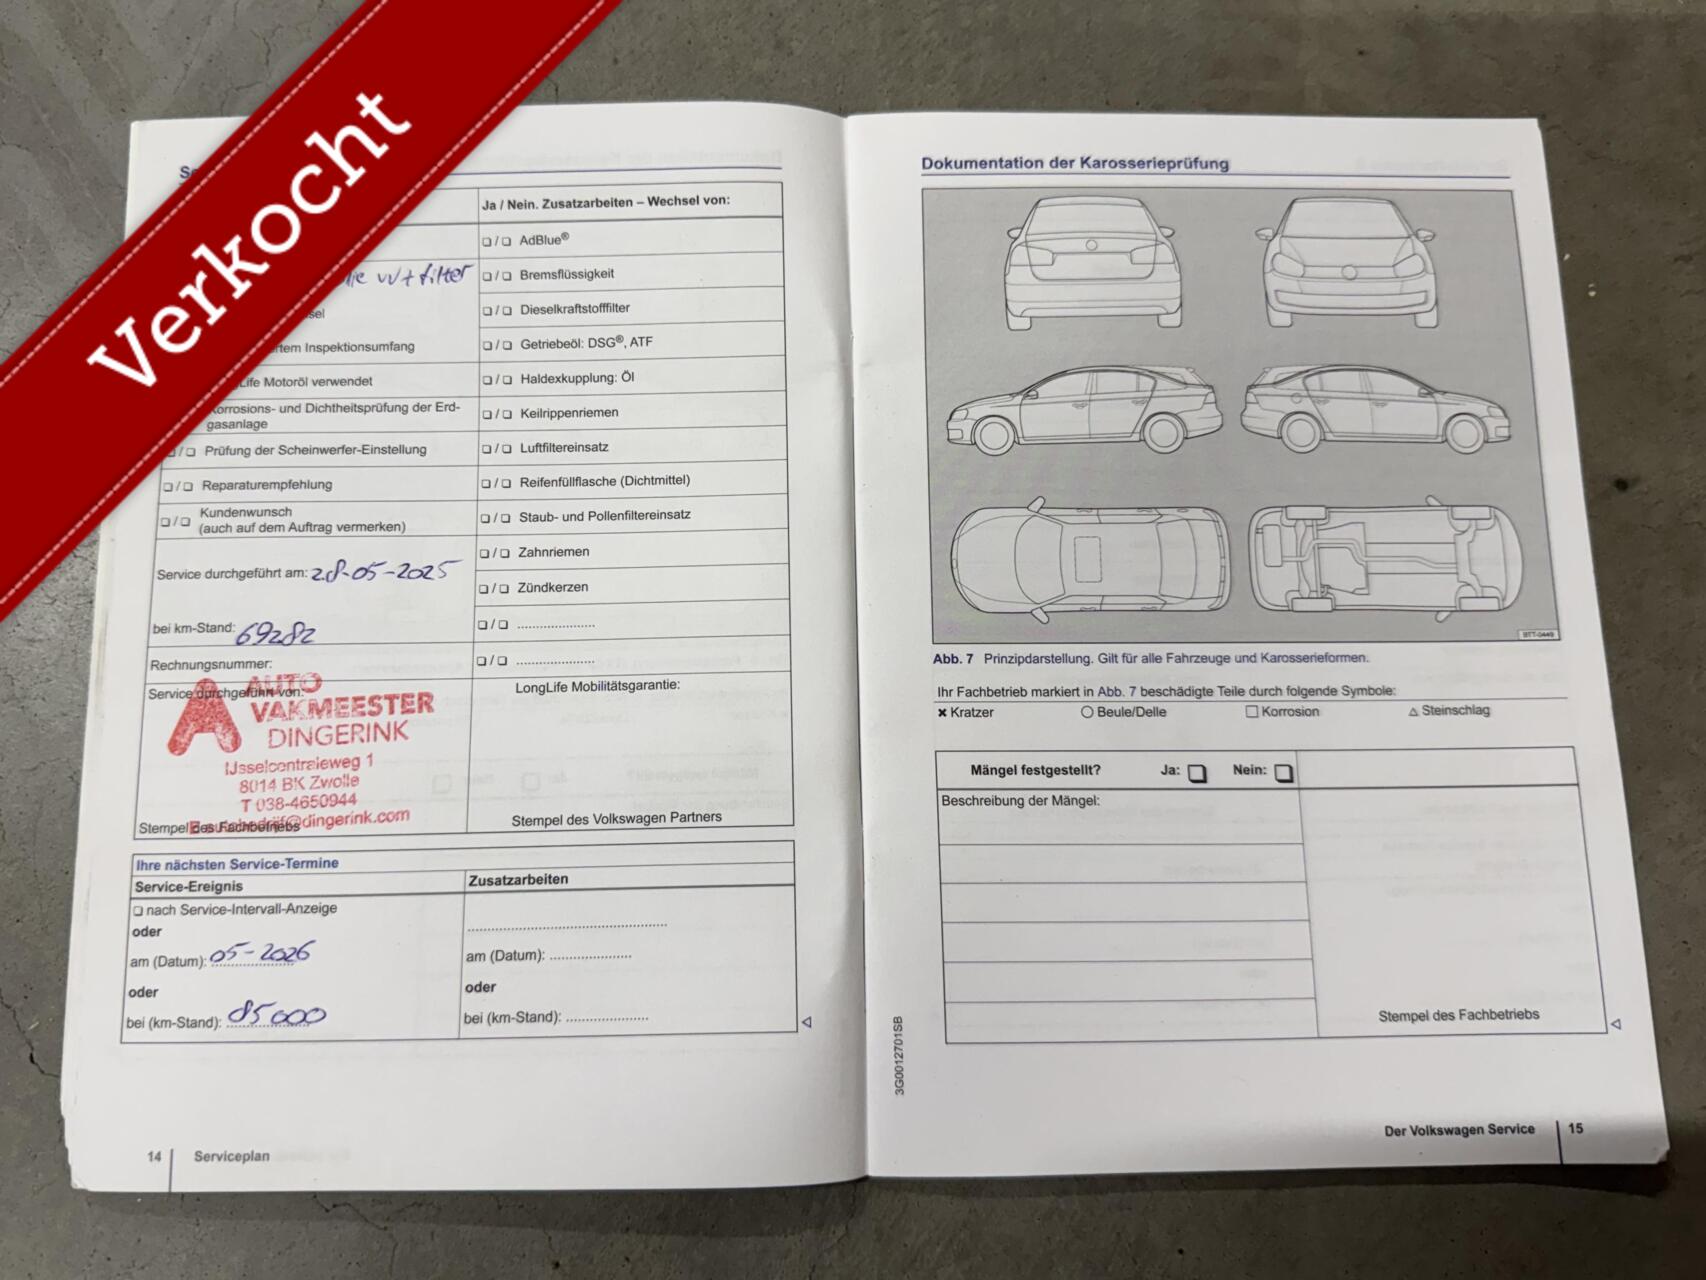 Verkocht
Ja / Nein. Zusatzarbeiten – Wechsel von:
❏ / ❏ AdBlue®
w+filter
❏ / ❏ Bremsflüssigkeit
❏ / ❏ Dieselkraftstofffilter
Inspektionsumfang
❏ / ❏ Getriebeöl: DSG®, ATF
Life Motoröl verwendet
❏ / ❏ Haldexkupplung: Öl
Korrosions- und Dichtheitsprüfung der Erd-
gasanlage
❏ / ❏ Keilrippenriemen
❏ / ❏ Prüfung der Scheinwerfer-Einstellung
❏ / ❏ Luftfiltereinsatz
❏ / ❏ Reparaturempfehlung
❏ / ❏ Reifenfüllflasche (Dichtmittel)
❏ / ❏ Kundenwunsch
(auch auf dem Auftrag vermerken)
❏ / ❏ Staub- und Pollenfiltereinsatz
❏ / ❏ Zahnriemen
Service durchgeführt am: 28-05-2025
❏ / ❏ Zündkerzen
bei km-Stand: 69282
❏ / ❏ ......................
Rechnungsnummer:
❏ / ❏ ......................
Service durchgeführt von:
AUTO
VAKMEESTER
DINGERINK
IJsselcentraleweg 1
8014 BK Zwolle
T 038-4650944
@dingerink.com
Stempel des Fachbetriebs
LongLife Mobilitätsgarantie:
Stempel des Volkswagen Partners
Ihre nächsten Service-Termine
Service-Ereignis
Zusatzarbeiten
❏ nach Service-Intervall-Anzeige
oder
am (Datum): 05-2026
oder
bei (km-Stand): 85000
am (Datum): ......................
oder
bei (km-Stand): ......................
14 Serviceplan
Dokumentation der Karosserieprüfung
BTT-0449
Abb. 7 Prinzipdarstellung. Gilt für alle Fahrzeuge und Karosserieformen.
Ihr Fachbetrieb markiert in Abb. 7 beschädigte Teile durch folgende Symbole:
✖ Kratzer ○ Beule/Delle □ Korrosion △ Steinschlag
Mängel festgestellt? Ja: ❏ Nein: ❏
Beschreibung der Mängel:
Stempel des Fachbetriebs
3G0012701SB
Der Volkswagen Service 15